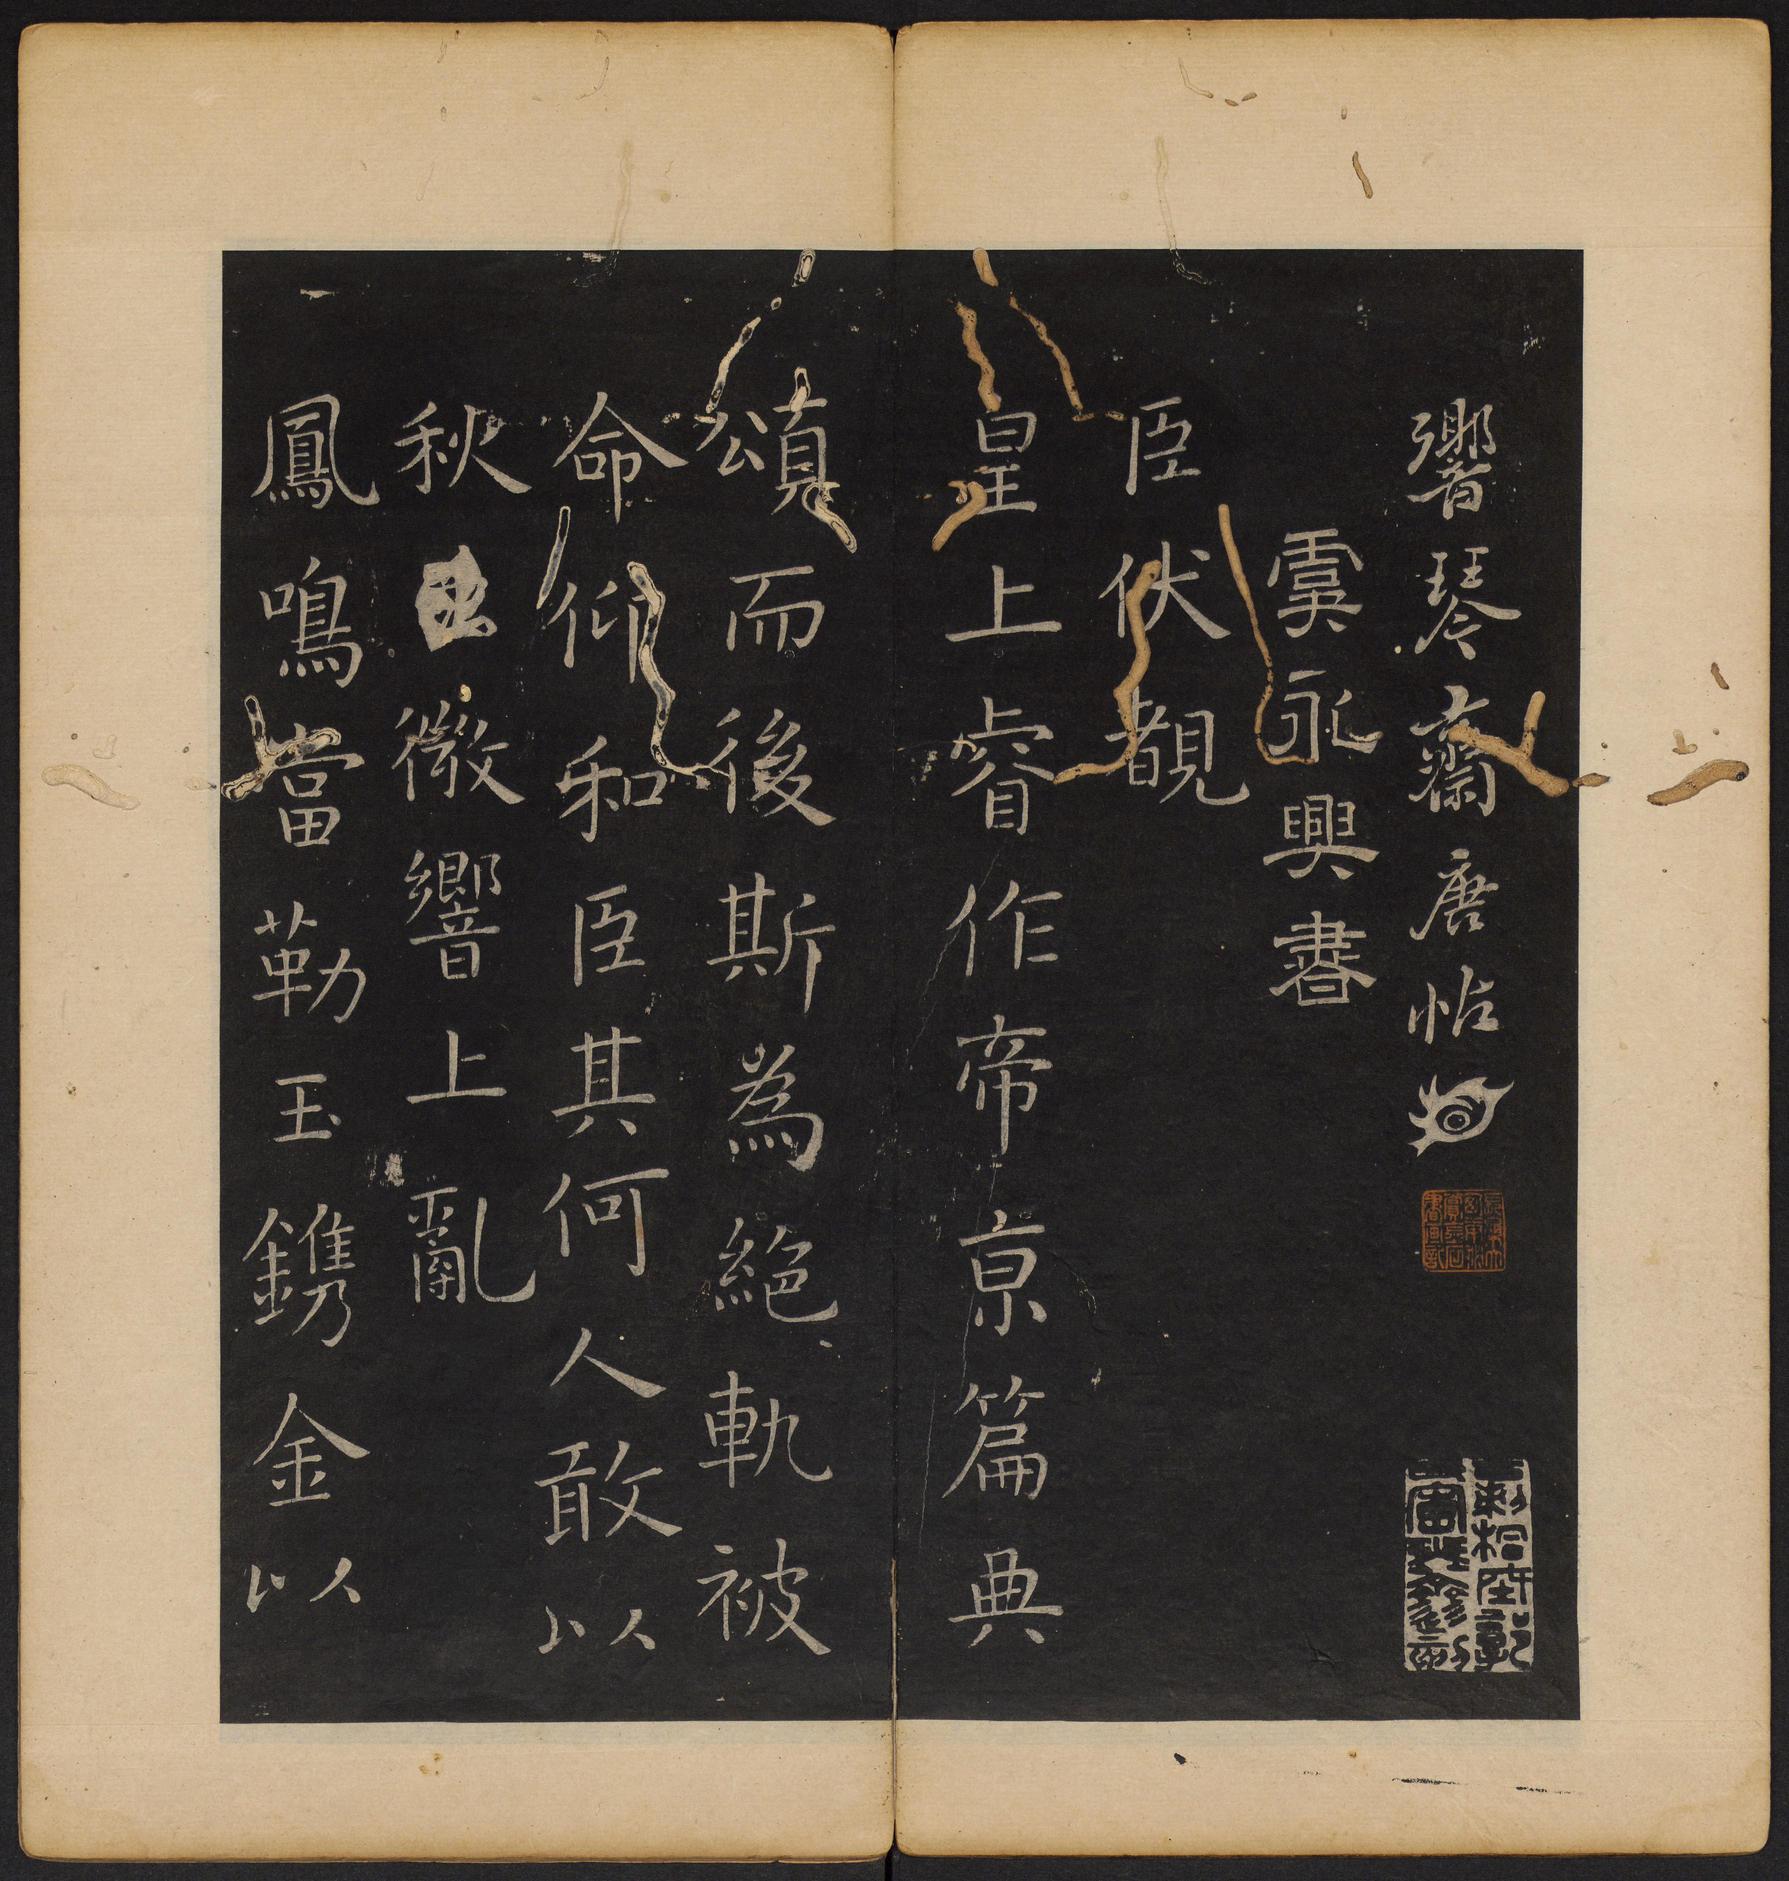 響琴齋唐帖
虞永興書
臣伏覩
皇上睿作帝京篇典
頌而後斯為絕軌被
命仰和臣其何人敢以
秋虫微響上亂
鳳鳴當勒玉鐫金以